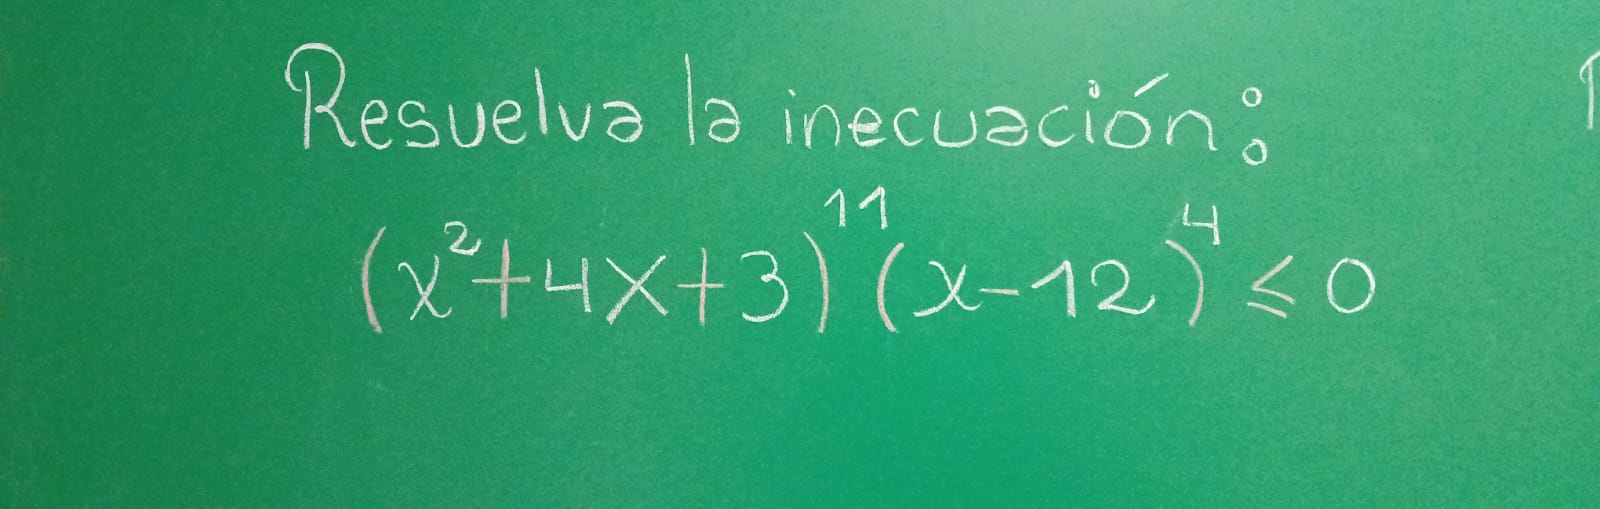 Resuelva la inecuación:
(x²+4x+3)¹¹(x-12)⁴ ≤ 0